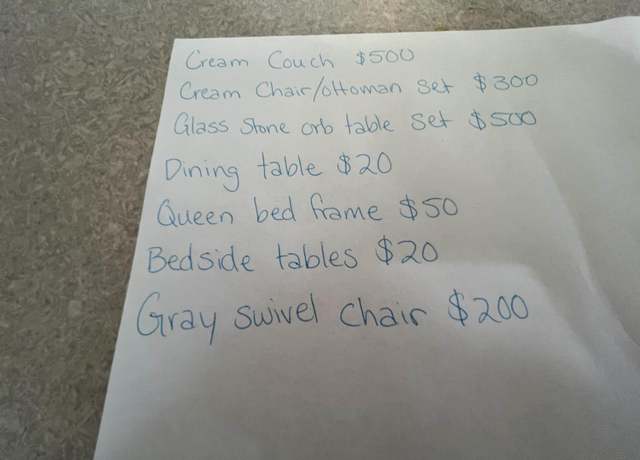 Cream Couch $500
Cream Chair/ottoman Set $300
Glass Stone orb table Set $500
Dining table $20
Queen bed frame $50
Bedside tables $20
Gray swivel chair $200